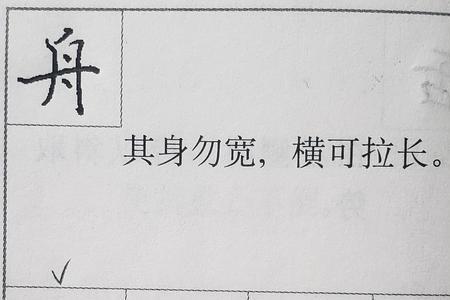 舟
其身勿宽，横可拉长。